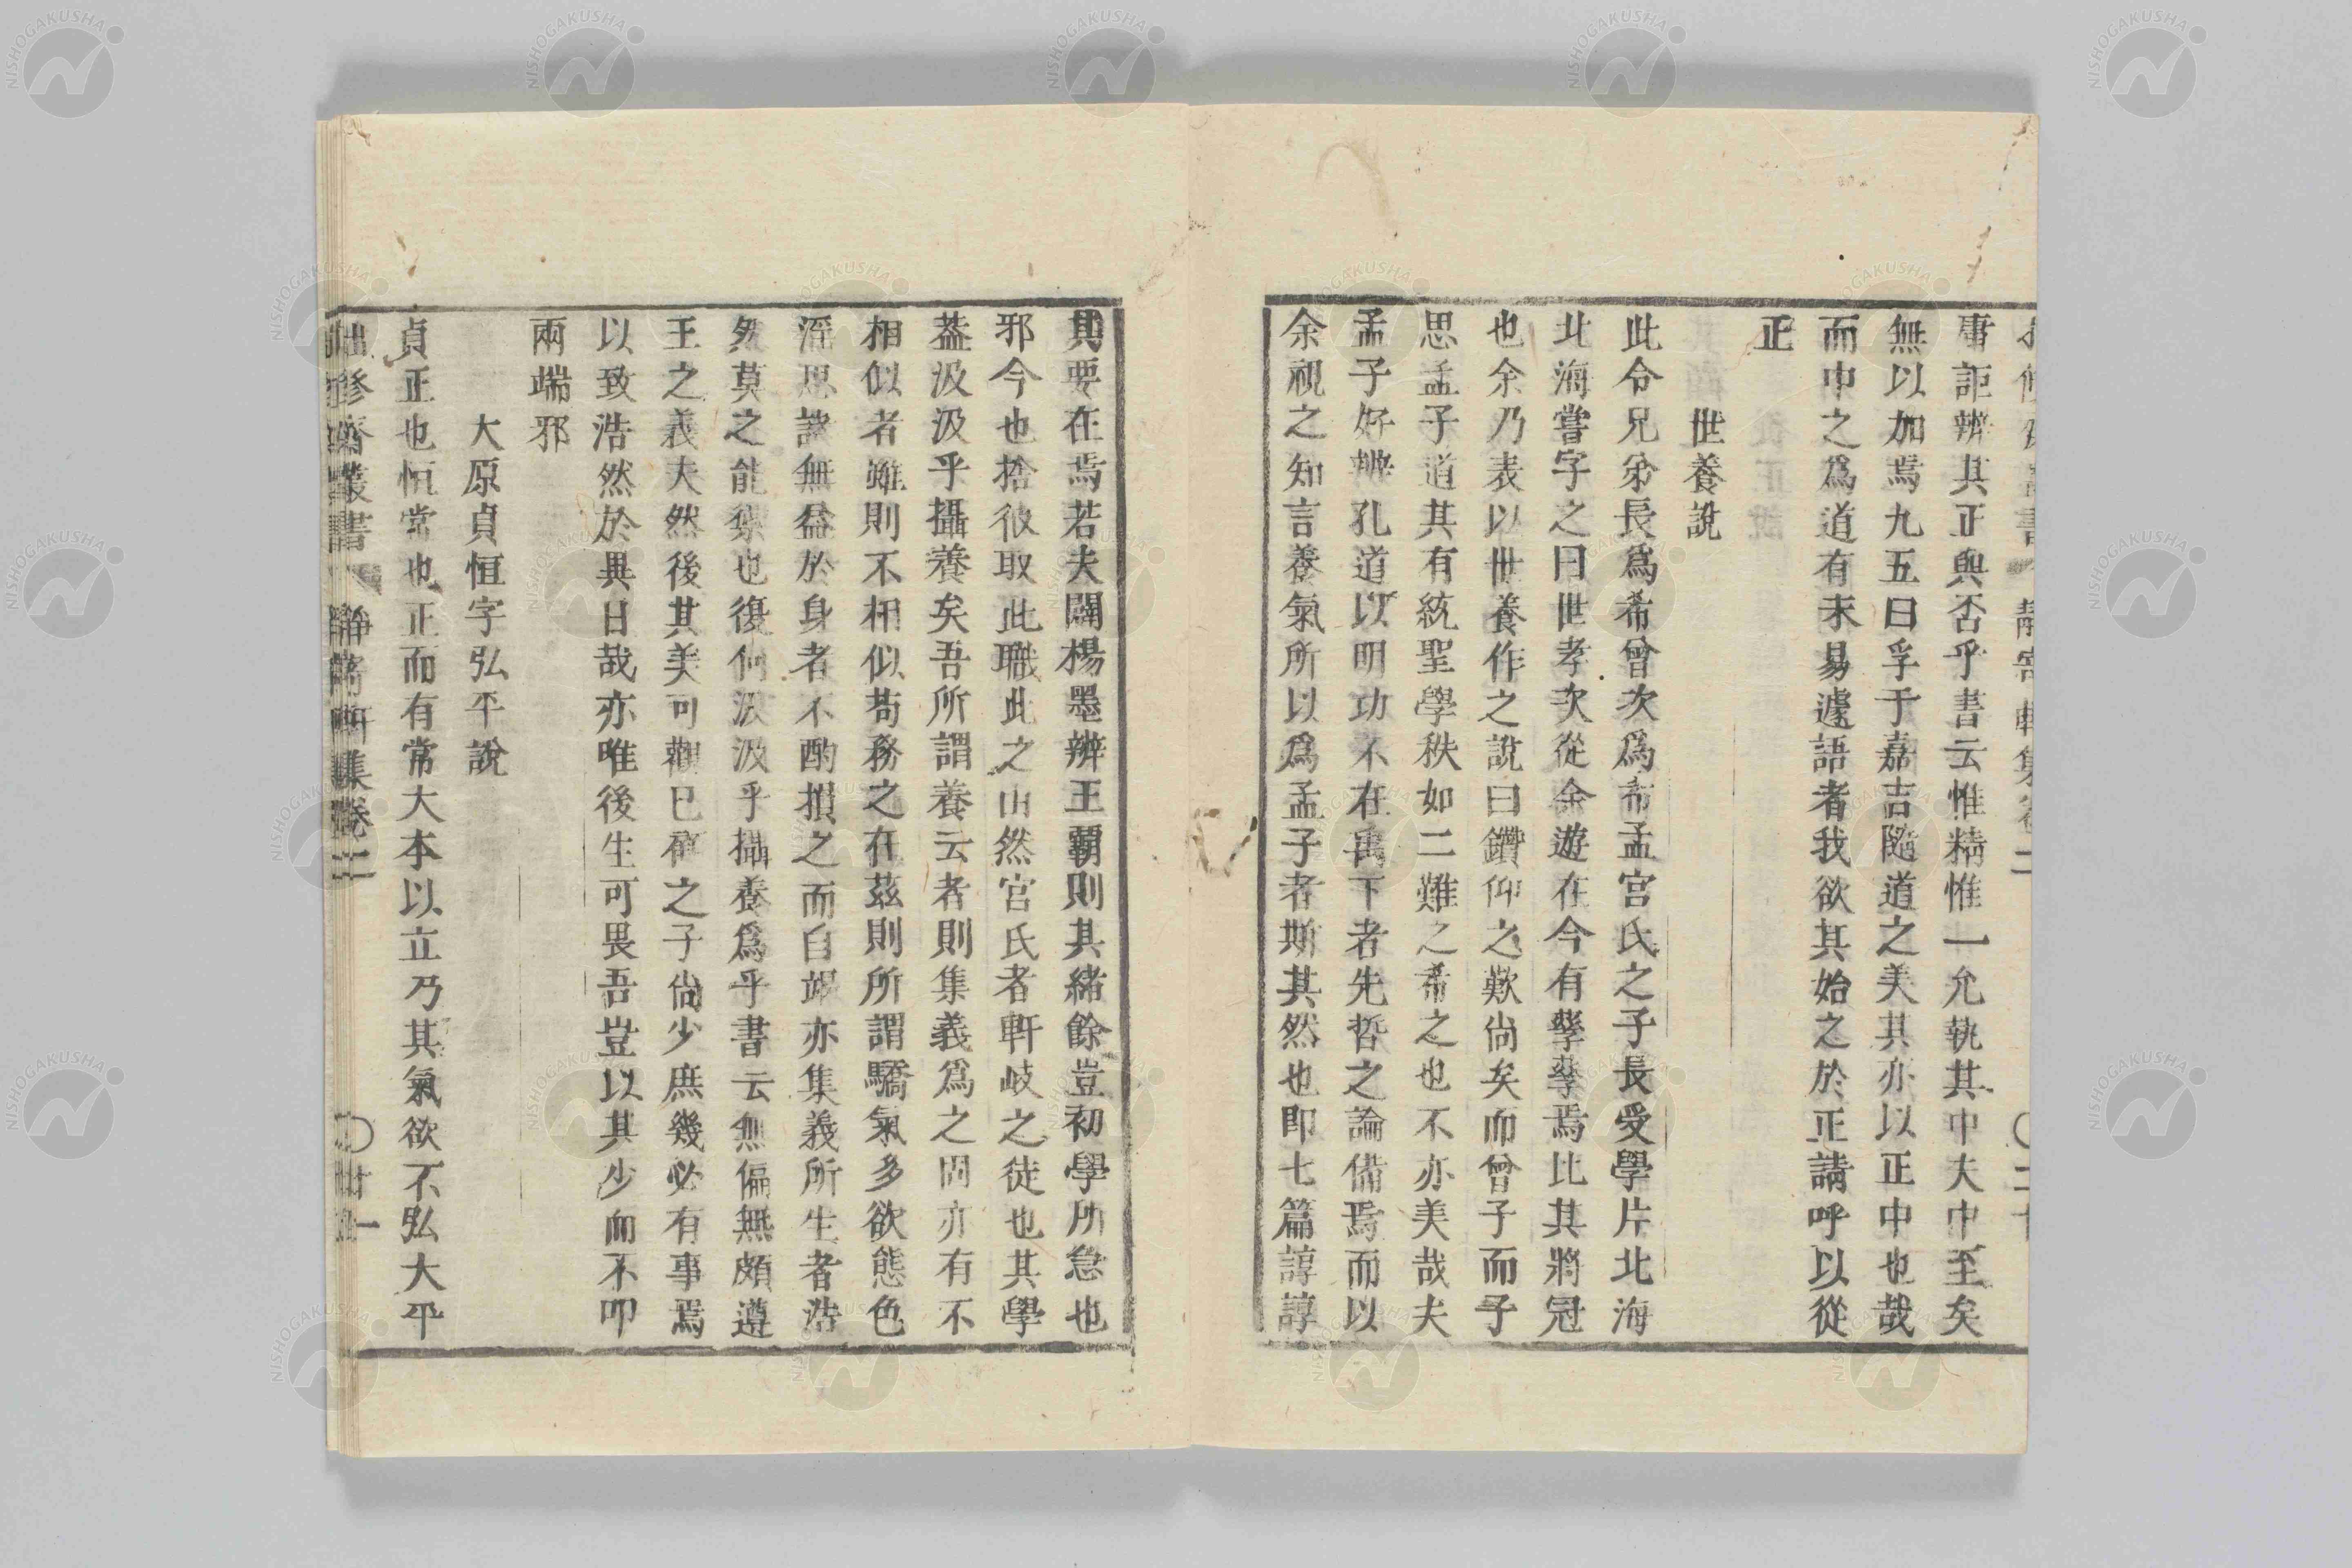 庸詎辨其正與否乎書云惟精惟一允執其中夫中至矣
無以加焉九五曰孚于嘉吉隨道之美其亦以正中也哉
而中之爲道有未易遽語者我欲其始之於正請呼以從
正
世養說
此令兄弟長爲希曾次爲希孟宮氏之子長受學片北海
北海嘗字之曰世孝次從余遊在今有孳孳焉比其將冠
也余乃表以世養作之說曰鑽仰之歎尚矣而曾子而子
思孟子道其有統聖學秩如二難之希之也不亦美哉夫
孟子好辨孔道以明功不在禹下者先哲之論備焉而以
余視之知言養氣所以爲孟子者斯其然也即七篇諄諄
其要在焉若夫闢楊墨辨王覇則其緒餘豈初學所急也
邪今也捨彼取此職此之由然宮氏者軒岐之徒也其學
葢汲汲乎攝養矣吾所謂養云者則集義爲之固亦有不
相似者雖則不相似苟務之在茲則所謂驕氣多欲態色
淫思諸無益於身者不酌損之而自竭亦集義所生者浩
然莫之能禦也復何汲汲乎攝養爲乎書云無偏無頗遵
王之義夫然後其美可觀已有之子尙少庶幾必有事焉
以致浩然於異日哉亦唯後生可畏吾豈以其少而不叩
兩端邪
大原貞恒字弘平說
貞正也恒常也正而有常大本以立乃其氣欲不弘大平
拙修齋叢書 靜寄軒集卷二 〇廿一